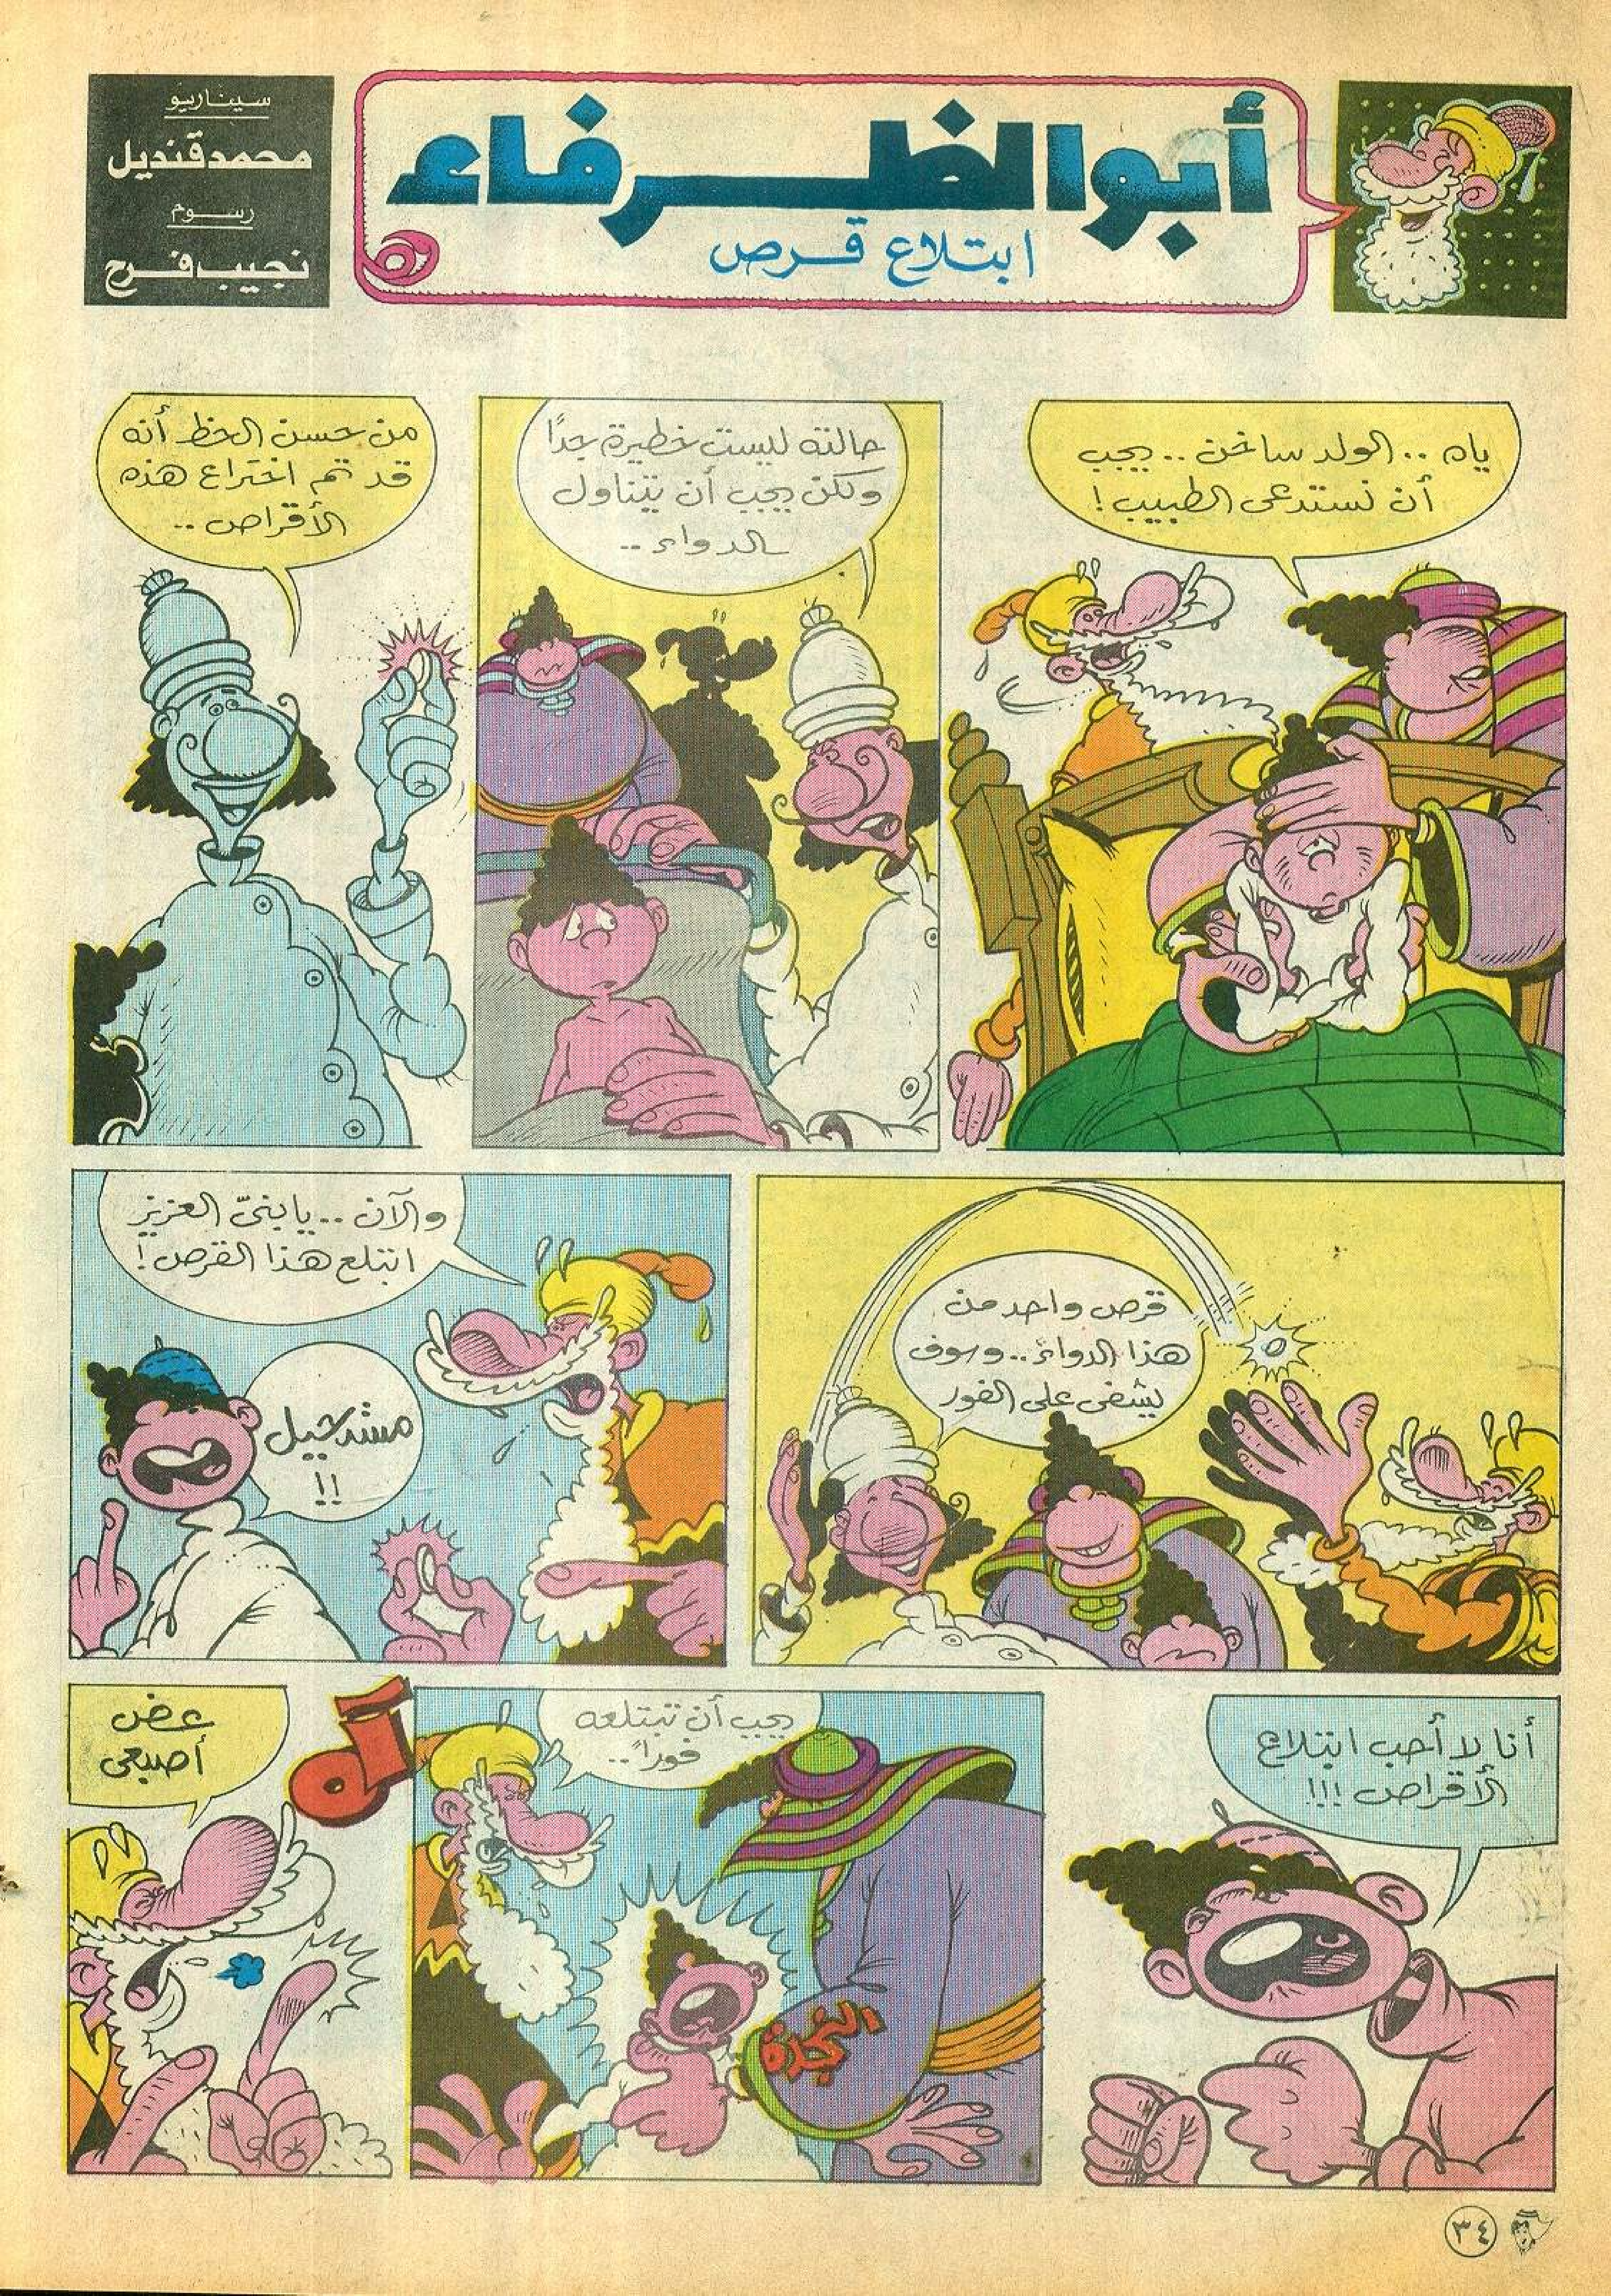 أبو الظرفاء
ابتلاع قرص
سيناريو
محمد قنديل
رسوم
نجيب فرح
ياه .. الولد ساخن .. يجب
أن نستدعى الطبيب !
حالته ليست خطيرة جدًا
ولكن يجب أن يتناول
الدواء ..
من حسن الحظ أنه
قد تم اختراع هذه
الأقراص ..
قرص واحد من
هذا الدواء .. وسوف
يشفى على الفور
والآن .. يا بنىّ العزيز
ابتلع هذا القرص !
مستحيل
!!
أنا لا أحب ابتلاع
الأقراص !!!
يجب أن تبتلعه
فوراً ..
النجدة
آه
عض
أصبعى
٣٤